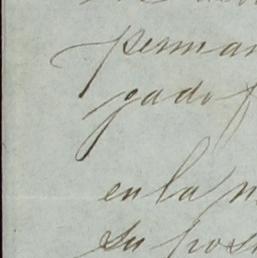 perman
gado f
en la m
su pos